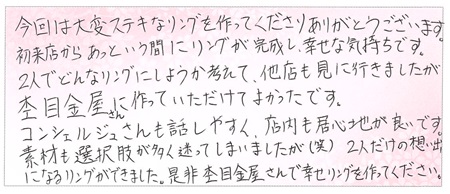 今回は大変ステキなリングを作ってくださりありがとうございます。
初来店からあっという間にリングが完成し、幸せな気持ちです。
2人でどんなリングにしようか考えて、他店も見に行きましたが
杢目金屋さんに作っていただけてよかったです。
コンシェルジュさんも話しやすく、店内も居心地が良いです。
素材も選択肢が多く迷ってしまいましたが(笑) 2人だけの想い出
になるリングができました。是非杢目金屋さんで幸せリングを作ってください。